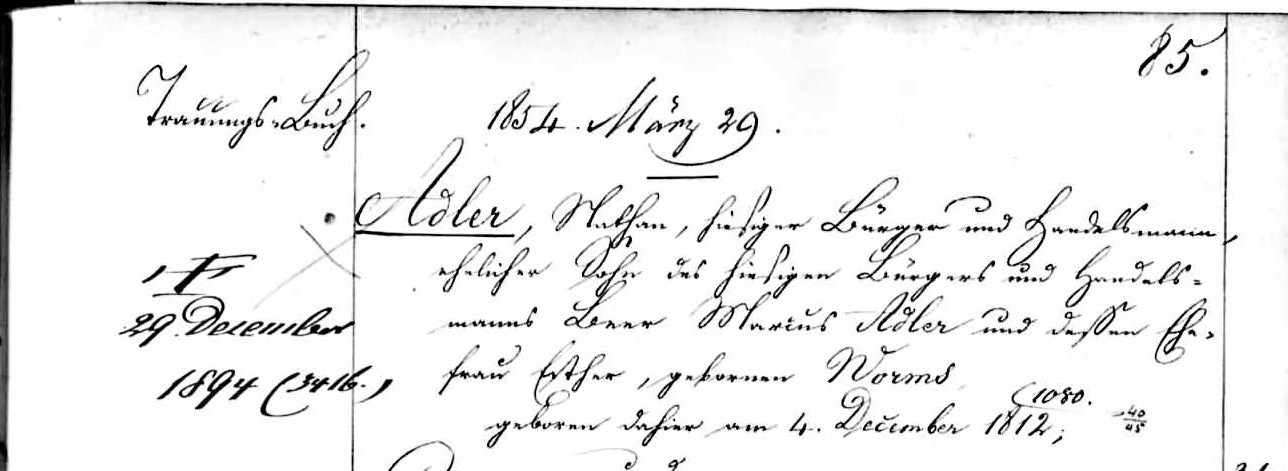 85.
Trauungs-Buch.
1854. März 29.
Adler, Nathan, hiesiger Bürger und Handelsmann,
ehelicher Sohn des hiesigen Bürgers und Handels-
manns Beer Marcus Adler und dessen Ehe-
frau Esther, gebornen Worms
(1080.
geboren dahier am 4. December 1812;
40
45
29 December
1894 (3416.)